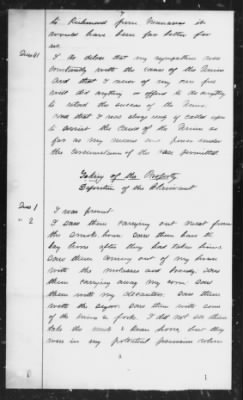 to Richmond from Manassas it
would have been far better for
us.
Ques 41
I do believe that my sympathies was
constantly with the cause of the Union
And that I never of my own free
will did anything or offered to do anything
to retard the success of the Union.
And that I was always ready if called upon
to assist the Cause of the Union so
far as my means and power under
the circumstances of the case permitted
Taking of the Property
Deposition of the Claimant
Ques 1
I was present.
" 2
I saw them carrying out meat from
the smoke house. saw them have the
bay horse after they had taken him
saw them coming out of my house
with the molasses and brandy. saw
them carrying away my corn. saw
them with my decanters. saw them
with the sugar. saw them with some
of the knives & forks. I did not see them
take the mule & brown horse, but they
were in my potential possession when